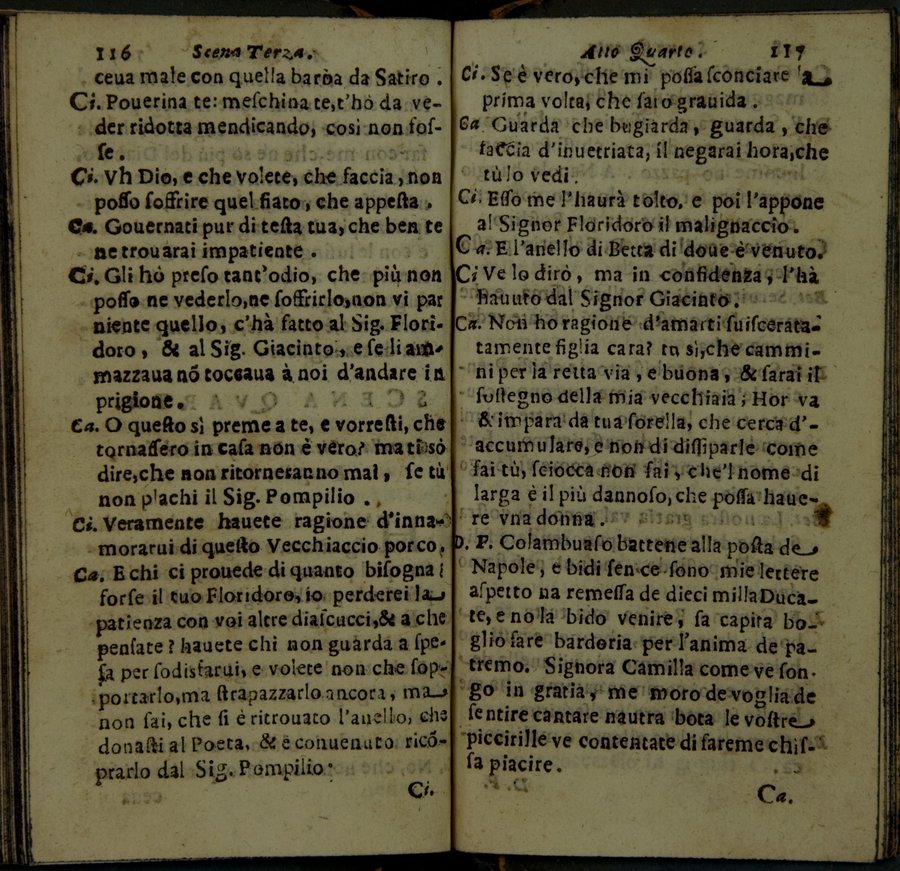 116 Scena Terza.
ceua male con quella barba da Satiro .
Ci. Pouerina te: meſchina te,t'hò da ve-
der ridotta mendicando, così non foſ-
ſe.
Ci. Vh Dio, e che volete, che faccia, non
poſſo ſoffrire quel fiato, che appeſta .
Ca. Gouernati pur di teſta tua, che ben te
ne trouarai impatiente .
Ci. Gli hò preſo tant'odio, che più non
poſſo ne vederlo,ne ſoffrirlo,non vi par
niente quello, c'hà fatto al Sig. Flori-
doro, & al Sig. Giacinto, e ſe li am-
mazzaua nõ toccaua à noi d'andare in
prigione.
Ca. O queſto sì preme a te, e vorreſti, che
tornaſſero in caſa non è vero? ma ti sò
dire,che non ritorneranno mai, ſe tù
non plachi il Sig. Pompilio .
Ci. Veramente hauete ragione d'inna-
morarui di queſto Vecchiaccio porco.
Ca. E chi ci prouede di quanto biſogna?
forſe il tuo Floridoro, io perderei la
patienza con voi altre diaſcucci,& a che
penſate? hauete chi non guarda a ſpe-
ſa per ſodisfarui, e volete non che ſop-
portarlo,ma ſtrapazzarlo ancora, ma
non ſai, che ſi è ritrouato l'anello, che
donaſti al Poeta, & è conuenuto ricõ-
prarlo dal Sig. Pompilio.
Ci.
Atto Quarto. 117
Ci. Se è vero, che mi poſſa ſconciare la
prima volta, che ſarò grauida .
Ca Guarda che bugiarda, guarda, che
faccia d'inuetriata, il negarai hora,che
tù lo vedi.
Ci. Eſſo me l'haurà tolto, e poi l'appone
al Signor Floridoro il malignaccio.
Ca. E l'anello di Betta di doue è venuto.
Ci Ve lo dirò, ma in confidenza, l'hà
hauuto dal Signor Giacinto.
Ca. Non ho ragione d'amarti ſuiſcerata-
tamente figlia cara? tu sì,che cammi-
ni per la retta via, e buona, & ſarai il
ſoſtegno della mia vecchiaia; Hor va
& impara da tua ſorella, che cerca d'-
accumulare, e non di diſſiparle come
fai tù, ſciocca non ſai, che'l nome di
larga è il più dannoſo, che poſſa haue-
re vna donna .
D. P. Colambuaſo battene alla poſta de
Napole, e bidi ſen ce ſono mie lettere
aſpetto na remeſſa de dieci milla Duca-
te, e no la bido venire, ſa capita bo-
glio fare bardoria per l'anima de pa-
tremo. Signora Camilla come ve ſon-
go in gratia, me moro de voglia de
ſentire cantare nautra bota le voſtre
piccirille ve contentate di fareme chiſ-
ſa piacire.
Ca.